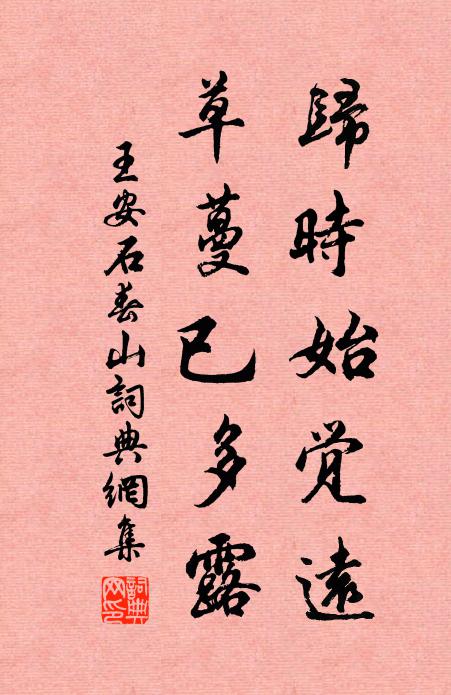 歸時始觉遠
草蔓已多露
王安石春山詞典網集
詞典网印